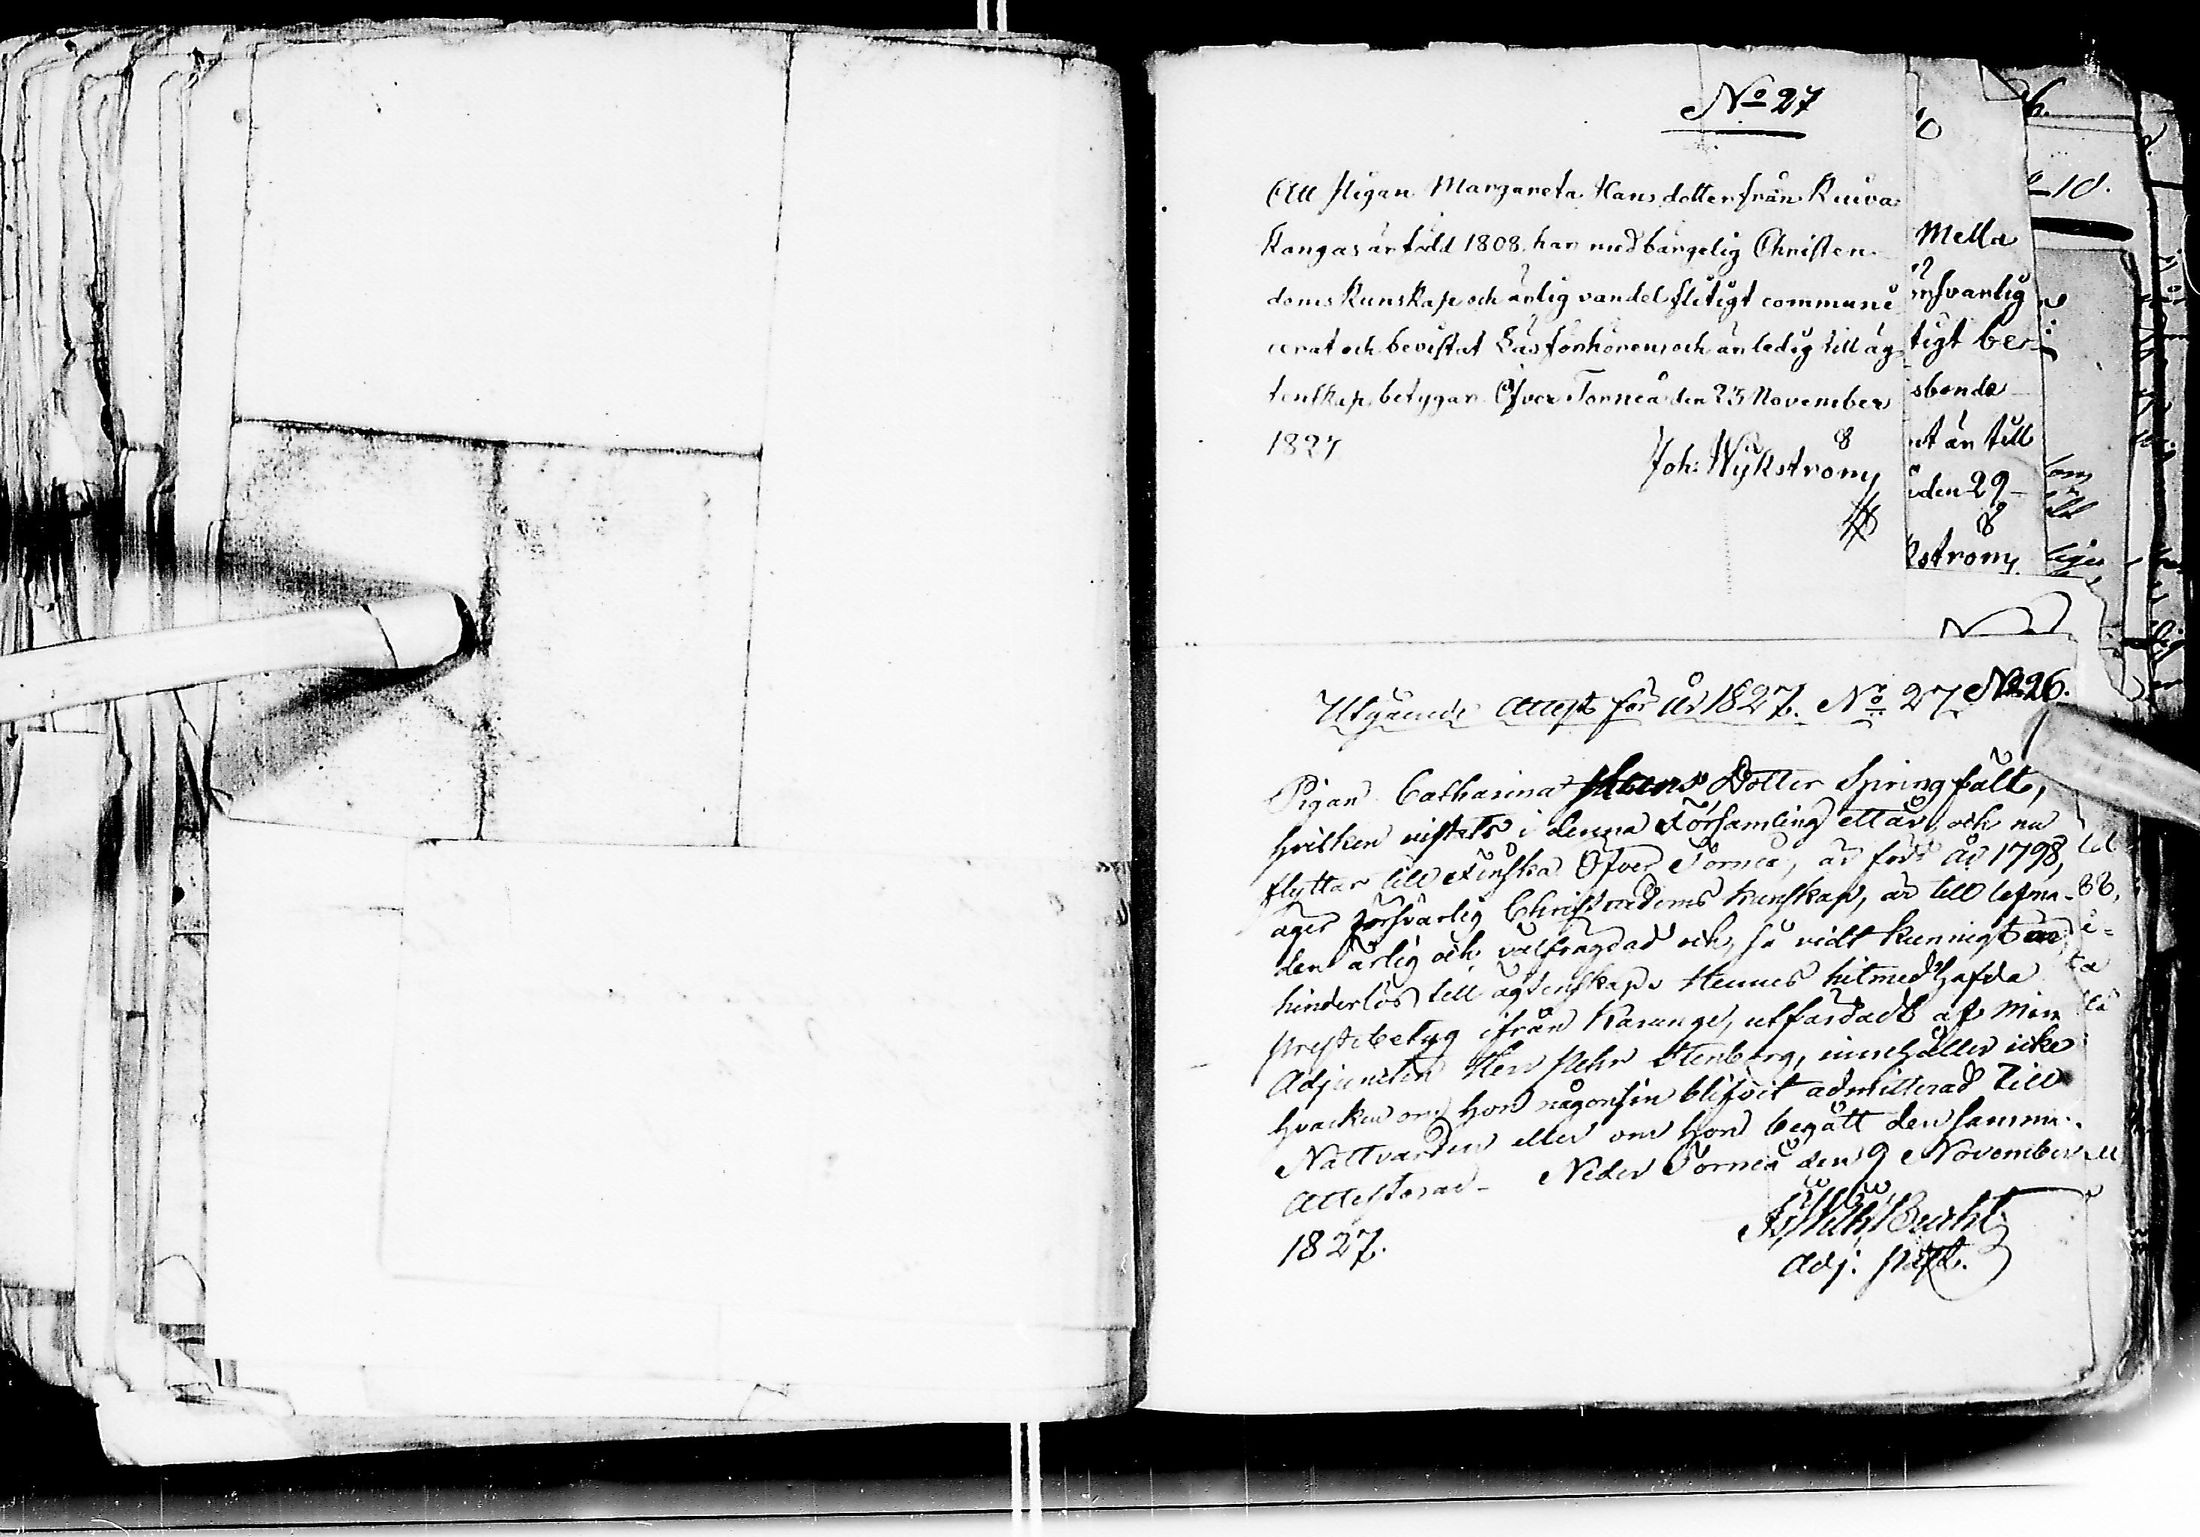 No 27
Att Pigan Margareta Hansdotter från Kuiva
Kangas är född 1808. har medbärgelig Christen-
doms Kunskap och ärlig vandel flitigt communi
cerat och bevistat Läsförhören, och är ledig till äg-
tenskap, betygar Öfver Torneå den 23 November
1827
Joh: Wijkström
Mella
nsvarlig
tigt be-
sbonde
nt är till
den 29
kström
Utgående Attest för År 1827. No 27 No 26.
Pigan Catharina Dotter Springfält,
hvilken vistats i denna Församling ett år, och nu
flyttar till Finska Öfver Torneå, är född år 1798,
äger försvarlig Christendoms kunskap, är till lefna-
den ärlig och välfrägdad och, så vidt kunnigt är,
hinderlös till ägtenskap. Hennes hitmedhafda
prestebetyg ifrån Karungi, utfärdadt af Min
Adjuncten Herr Pehr Stenborg, innehåller icke
hvarken om hon någonsin blifvit admitterad till
Nattvarden eller om hon begått densamma.
Attesteras Neder Torneå den 9 November
1827.
Bucht
Adj. Past.